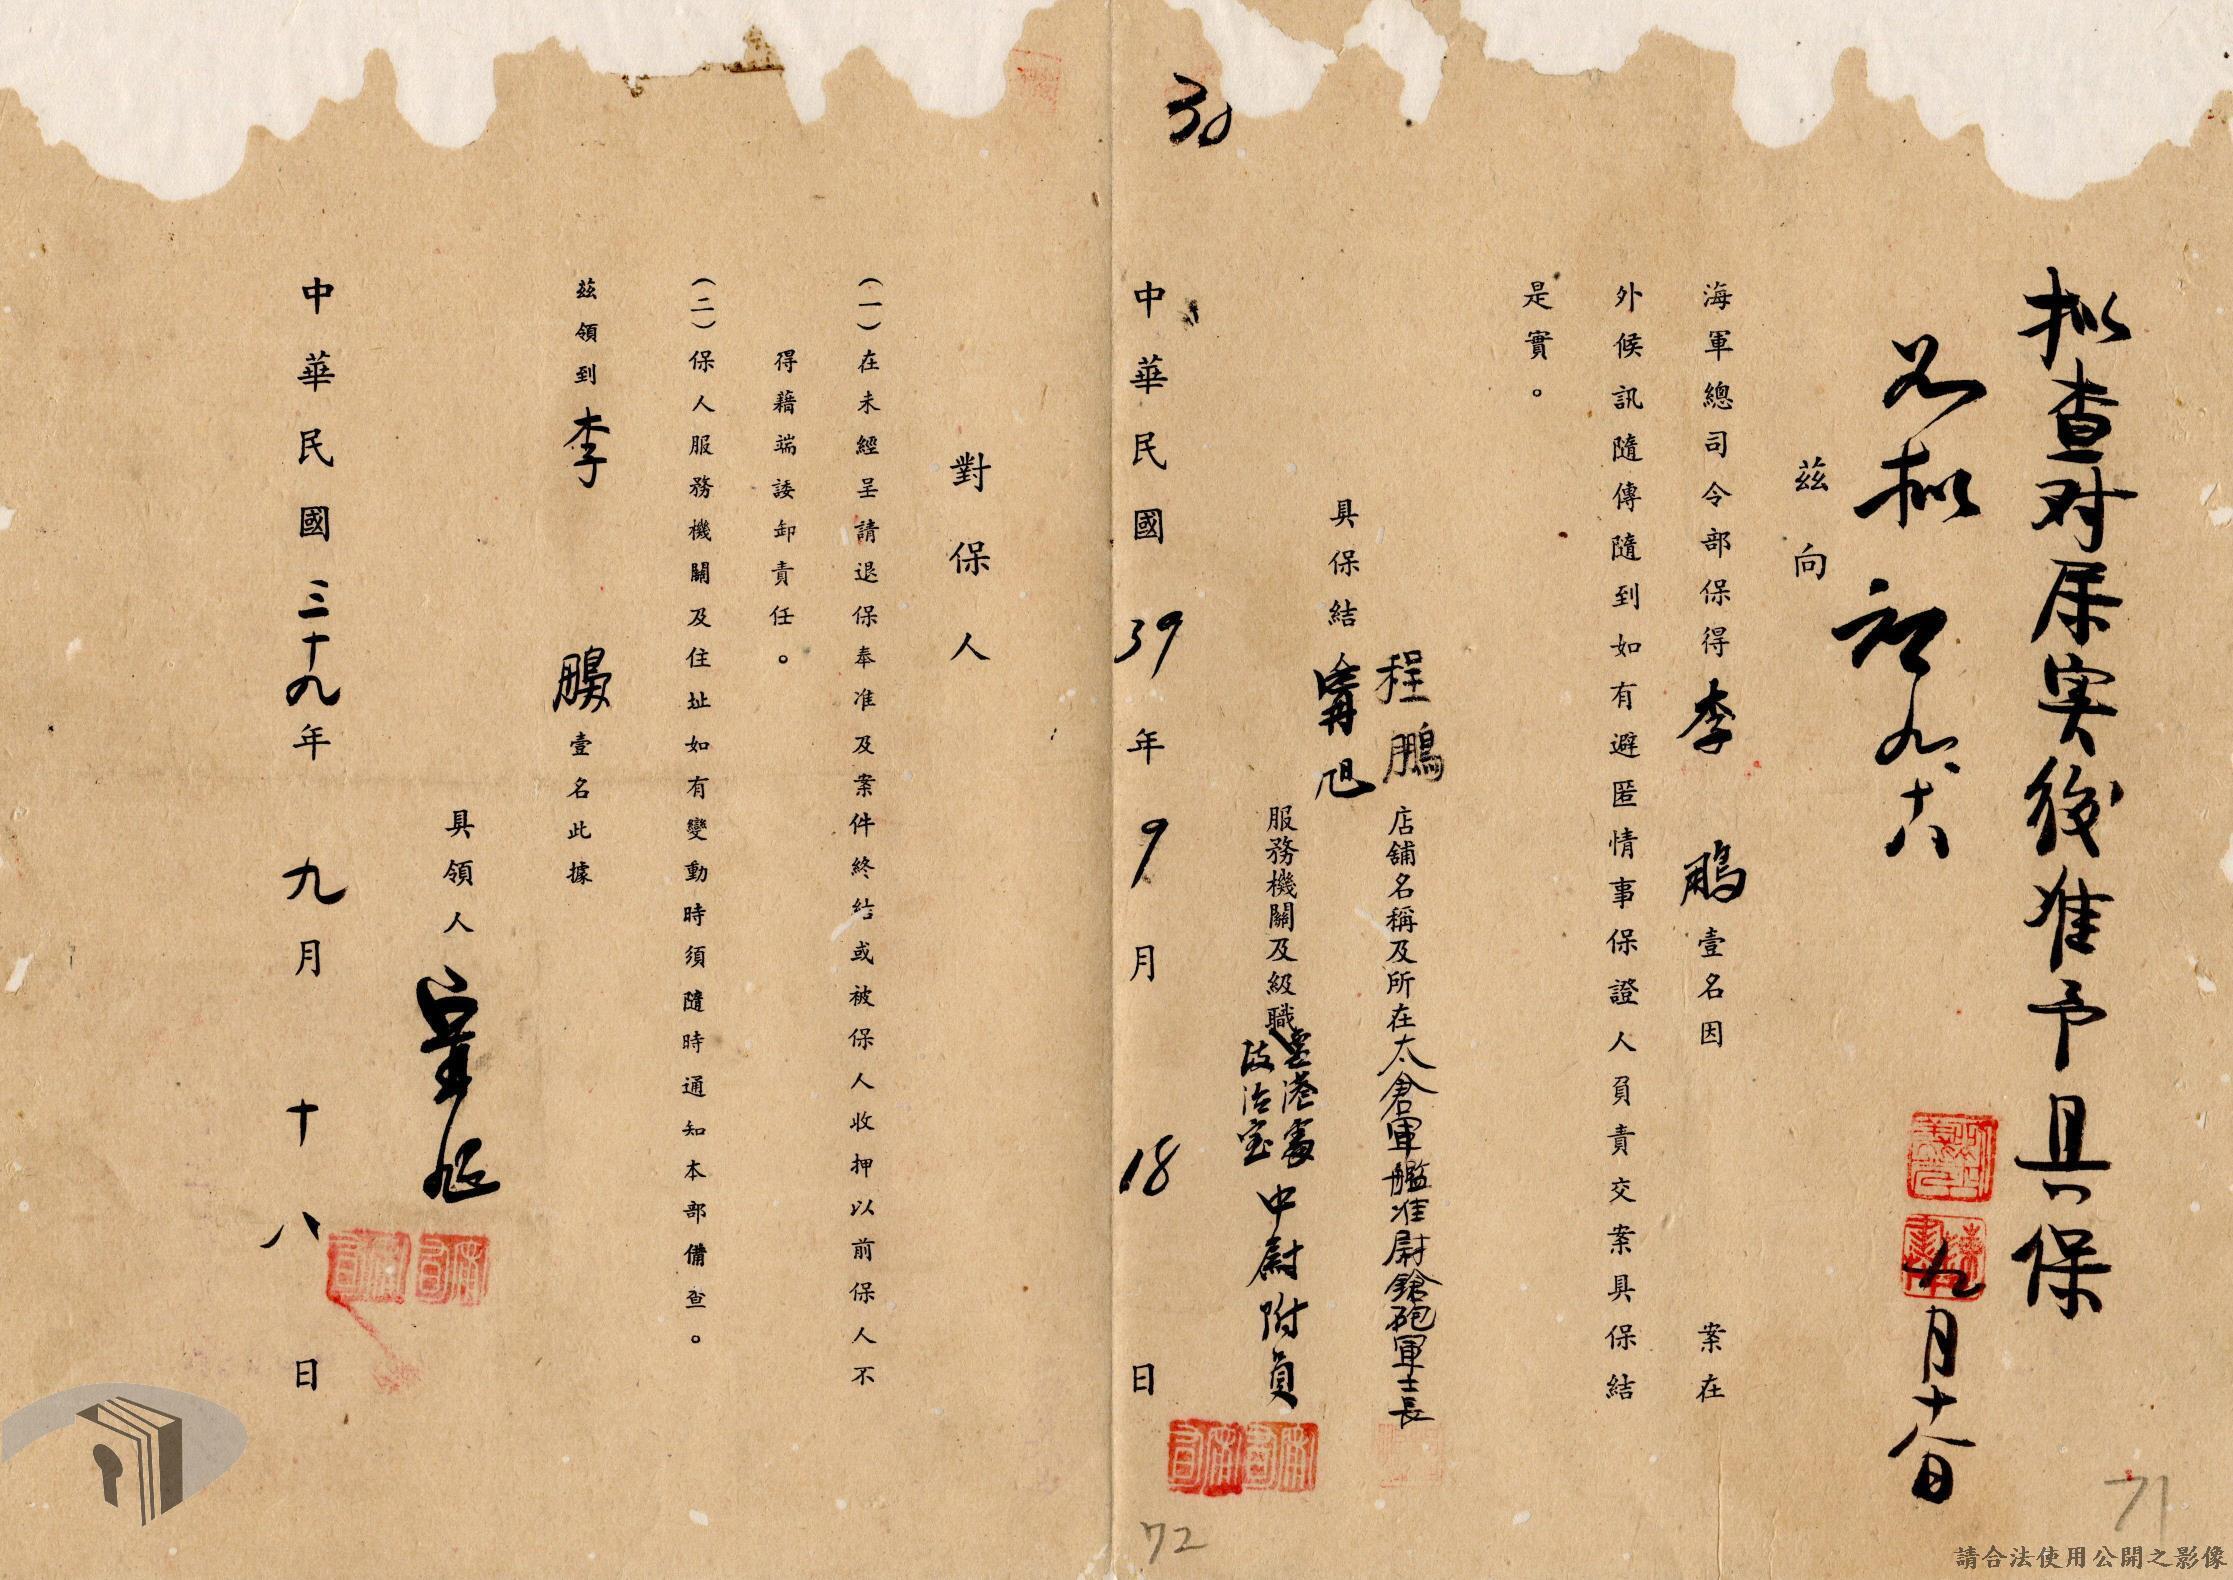 拟查对属实後准予具保
九月十八日
如拟
九、十八
茲向
海軍總司令部保得李鵬壹名因案在
外候訊隨傳隨到如有避匿情事保證人負責交案具保結
是實。
程鵬店舖名稱及所在太倉軍艦准尉鎗砲軍士長
具保結人甯旭
服務機關及級職
港務
政治室中尉附員
中華民國39年9月18日
30
對保人
(一)在未經呈請退保奉准及案件終結或被保人收押以前保人不
得藉端諉卸責任。
(二)保人服務機關及住址如有變動時須隨時通知本部備查。
茲領到李鵬壹名此據
具領人甯旭
中華民國三十九年九月十八日
71
72
請合法使用公開之影像